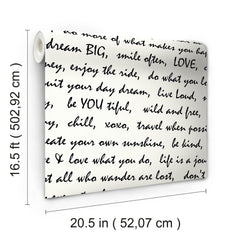 do more of what makes you
dream BIG, smile often, LOVE,
enjoy the ride, do what you
your day dream, live Loud,
be YOU tiful, wild and free,
chill, xoxo, travel when
your own sunshine, be kind,
& LOVE what you do, life is a
all who wander are lost,
16.5 ft ( 502,92 cm )
20.5 in ( 52,07 cm )